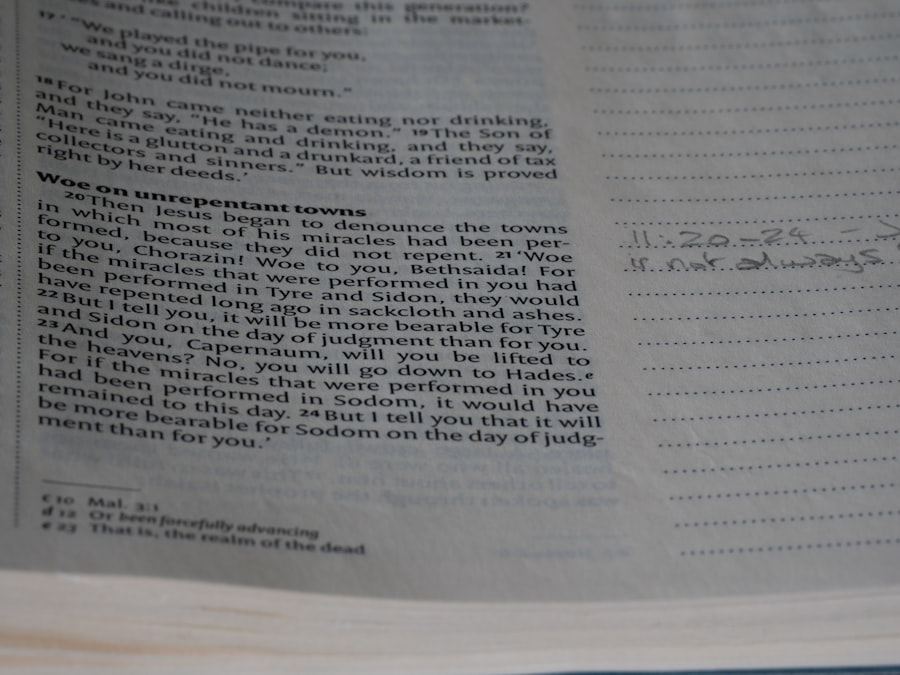 compare this generation?
children sitting in the market-
and calling out to others:
17 '"We played the pipe for you,
and you did not dance;
we sang a dirge,
and you did not mourn."
18 For John came neither eating nor drinking,
and they say, "He has a demon." 19 The Son of
Man came eating and drinking, and they say,
"Here is a glutton and a drunkard, a friend of tax
collectors and sinners." But wisdom is proved
right by her deeds.'
Woe on unrepentant towns
20 Then Jesus began to denounce the towns
in which most of his miracles had been per-
formed, because they did not repent. 21 'Woe
to you, Chorazin! Woe to you, Bethsaida! For
if the miracles that were performed in you had
been performed in Tyre and Sidon, they would
have repented long ago in sackcloth and ashes.
22 But I tell you, it will be more bearable for Tyre
and Sidon on the day of judgment than for you.
23 And you, Capernaum, will you be lifted to
the heavens? No, you will go down to Hades.e
For if the miracles that were performed in you
had been performed in Sodom, it would have
remained to this day. 24 But I tell you that it will
be more bearable for Sodom on the day of judg-
ment than for you.'
c 10 Mal. 3:1
d 12 Or been forcefully advancing
e 23 That is, the realm of the dead
11:20-24 -
is not always